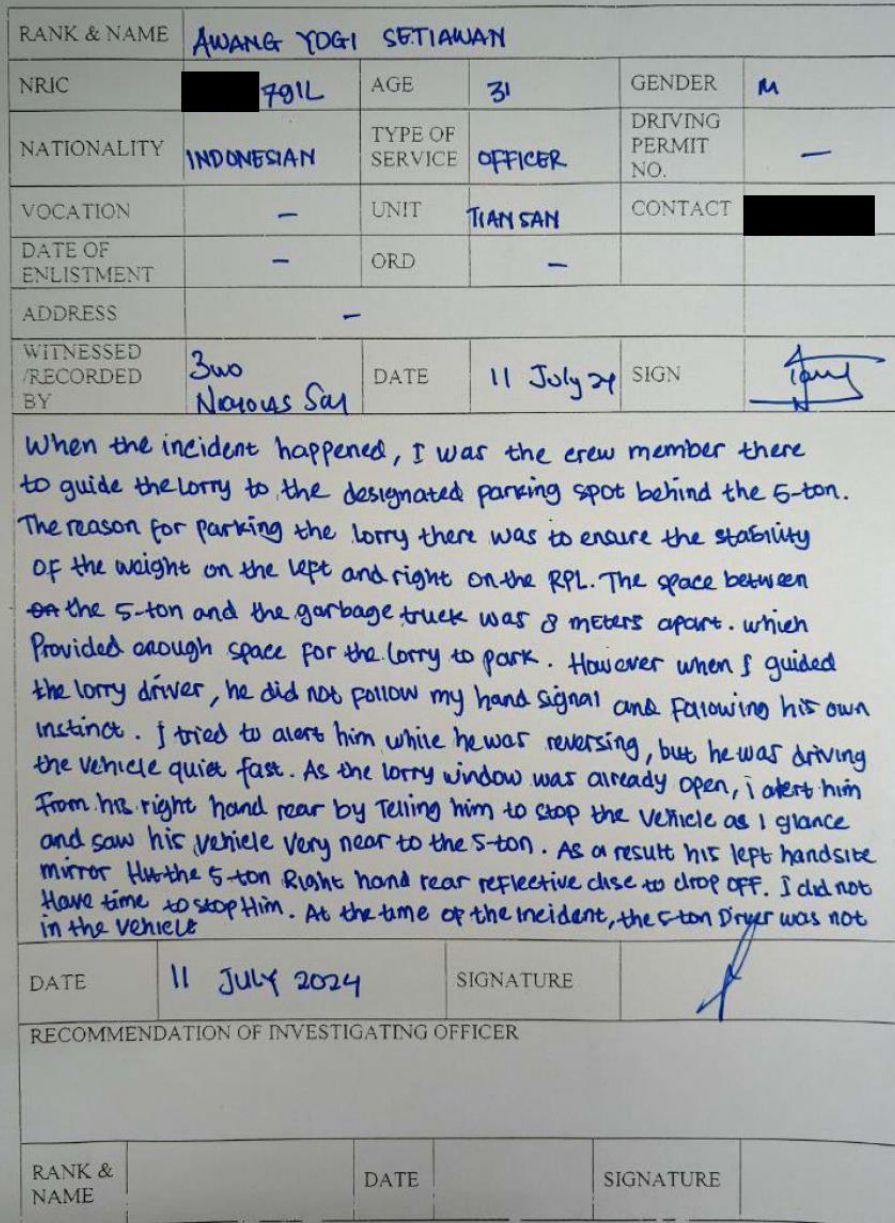 RANK & NAME AWANG YOGI SETIAWAN
NRIC 791L AGE 31 GENDER M
NATIONALITY INDONESIAN TYPE OF SERVICE OFFICER DRIVING PERMIT NO. –
VOCATION – UNIT TIAN SAN CONTACT
DATE OF ENLISTMENT – ORD –
ADDRESS –
WITNESSED /RECORDED BY 3WO Nicholas DATE 11 July 24 SIGN
When the incident happened, I was the crew member there
to guide the lorry to the designated parking spot behind the 5-ton.
The reason for parking the lorry there was to ensure the stability
of the weight on the left and right on the RPL. The space between
the 5-ton and the garbage truck was 8 meters apart. which
Provided enough space for the lorry to park. However when I guided
the lorry driver, he did not follow my hand signal and following his own
instinct. I tried to alert him while he was reversing, but he was driving
the vehicle quiet fast. As the lorry window was already open, i alert him
From his right hand rear by Telling him to stop the vehicle as I glance
and saw his vehicle very near to the 5-ton. As a result his left handsite
mirror Hit the 5-ton Right hand rear reflective disc to drop off. I did not
Have time to stop Him. At the time of the incident, the 5-ton was not
in the vehicle
DATE 11 JULY 2024 SIGNATURE
RECOMMENDATION OF INVESTIGATING OFFICER
RANK & NAME DATE SIGNATURE